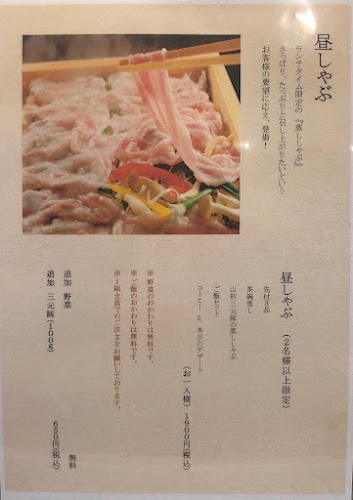 昼しゃぶ
ランチタイム限定の『蒸ししゃぶ』
さっぱり、たっぷりと召し上がりたいという
お客様の要望に応え、登場！
昼しゃぶ (2名様以上限定)
先付3品
茶碗蒸し
山形三元豚の蒸ししゃぶ
ご飯セット
コーヒー & 本日のデザート
(お一人様) 1900円(税込)
※野菜のおかわりは無料です。
※ご飯のおかわりは無料です。
※1組全員でのご注文をお願いしております。
追加 野菜 無料
追加 三元豚(100g) 650円(税込)